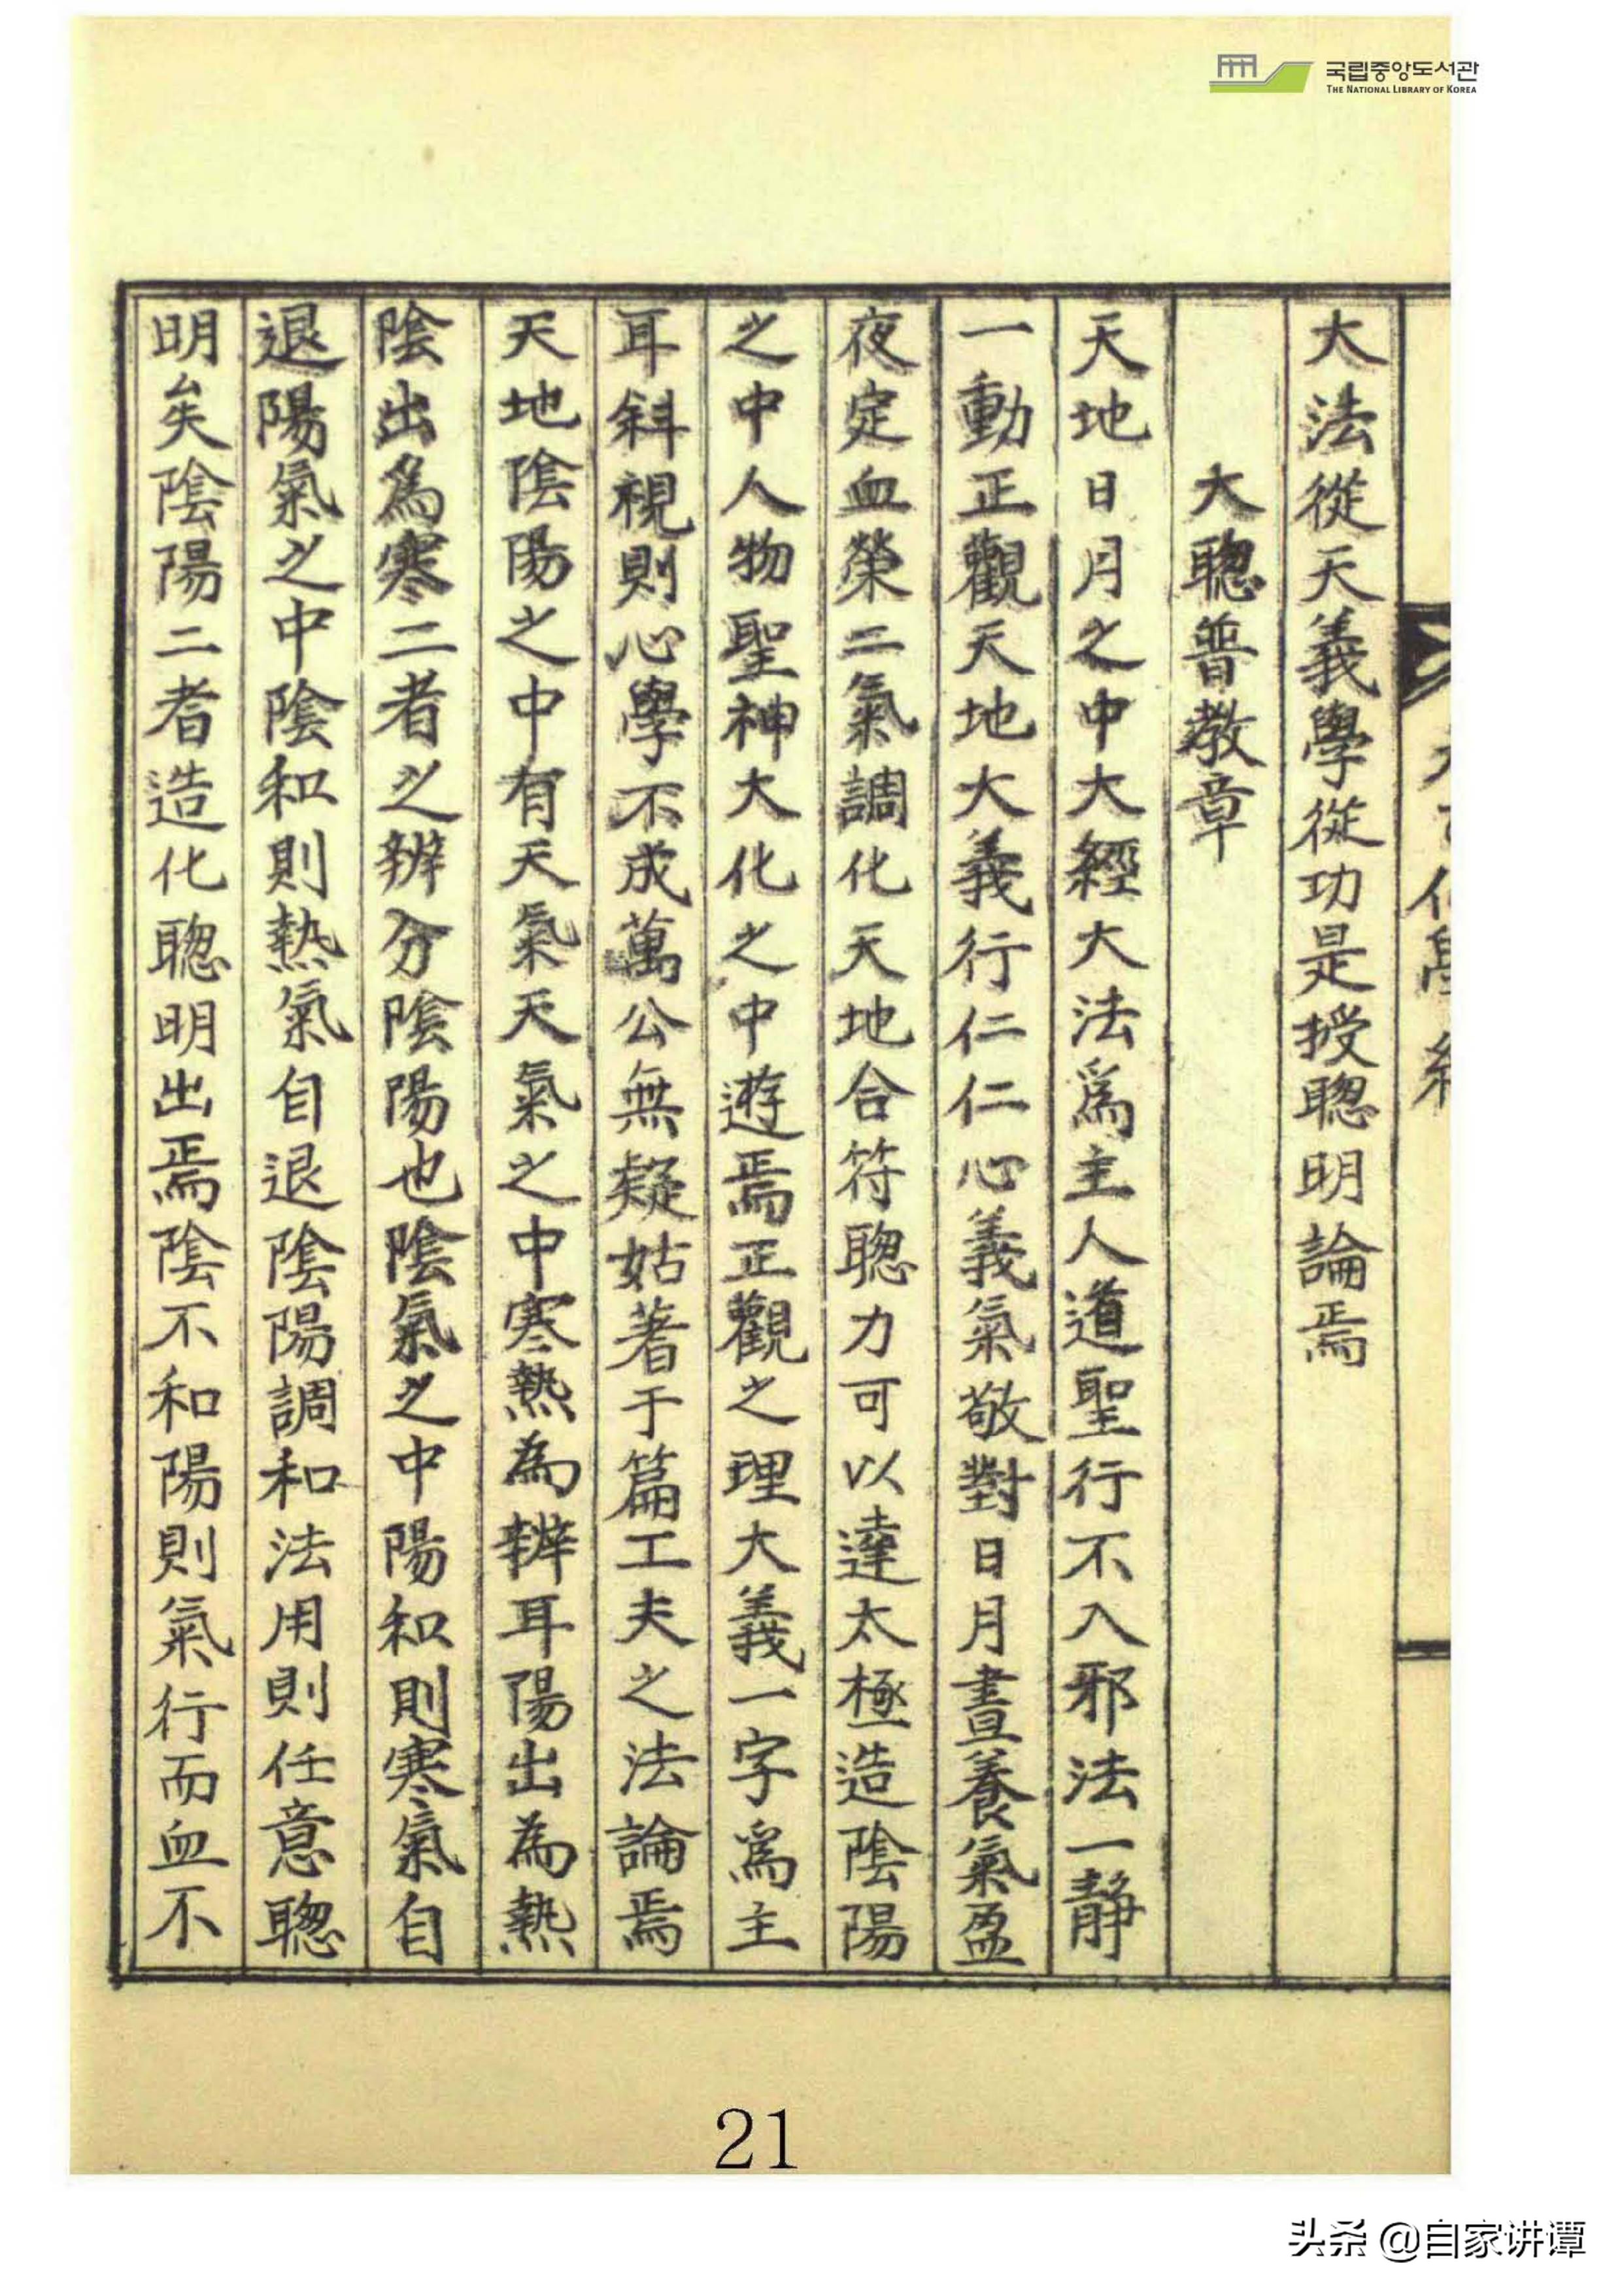 국립중앙도서관
THE NATIONAL LIBRARY OF KOREA
大法從天義學從功是授聰明論焉
大聰普教章
天地日月之中大經大法爲主人道聖行不入邪法一靜
一動正觀天地大義行仁仁心義氣敬對日月晝養氣盈
夜定血榮二氣調化天地合符聰力可以達太極造陰陽
之中人物聖神大化之中遊焉正觀之理大義一字爲主
耳斜視則心學不成萬公無疑姑著于篇工夫之法論焉
天地陰陽之中有天氣天氣之中寒熱為辨耳陽出為熱
陰出為寒二者之辨分陰陽也陰氣之中陽和則寒氣自
退陽氣之中陰和則熱氣自退陰陽調和法用則任意聰
明矣陰陽二者造化聰明出焉陰不和陽則氣行而血不
21
头条 @自家讲谭